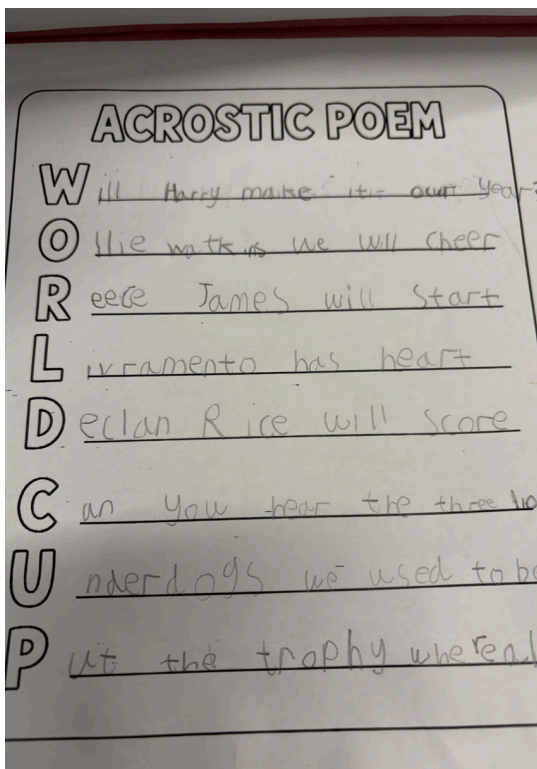 ACROSTIC POEM
Will Harry make it our year?
Ollie watkins we will cheer
Reece James will start
Livramento has heart
Declan Rice will score
Can you hear the three
Underdogs we used to
Put the trophy where